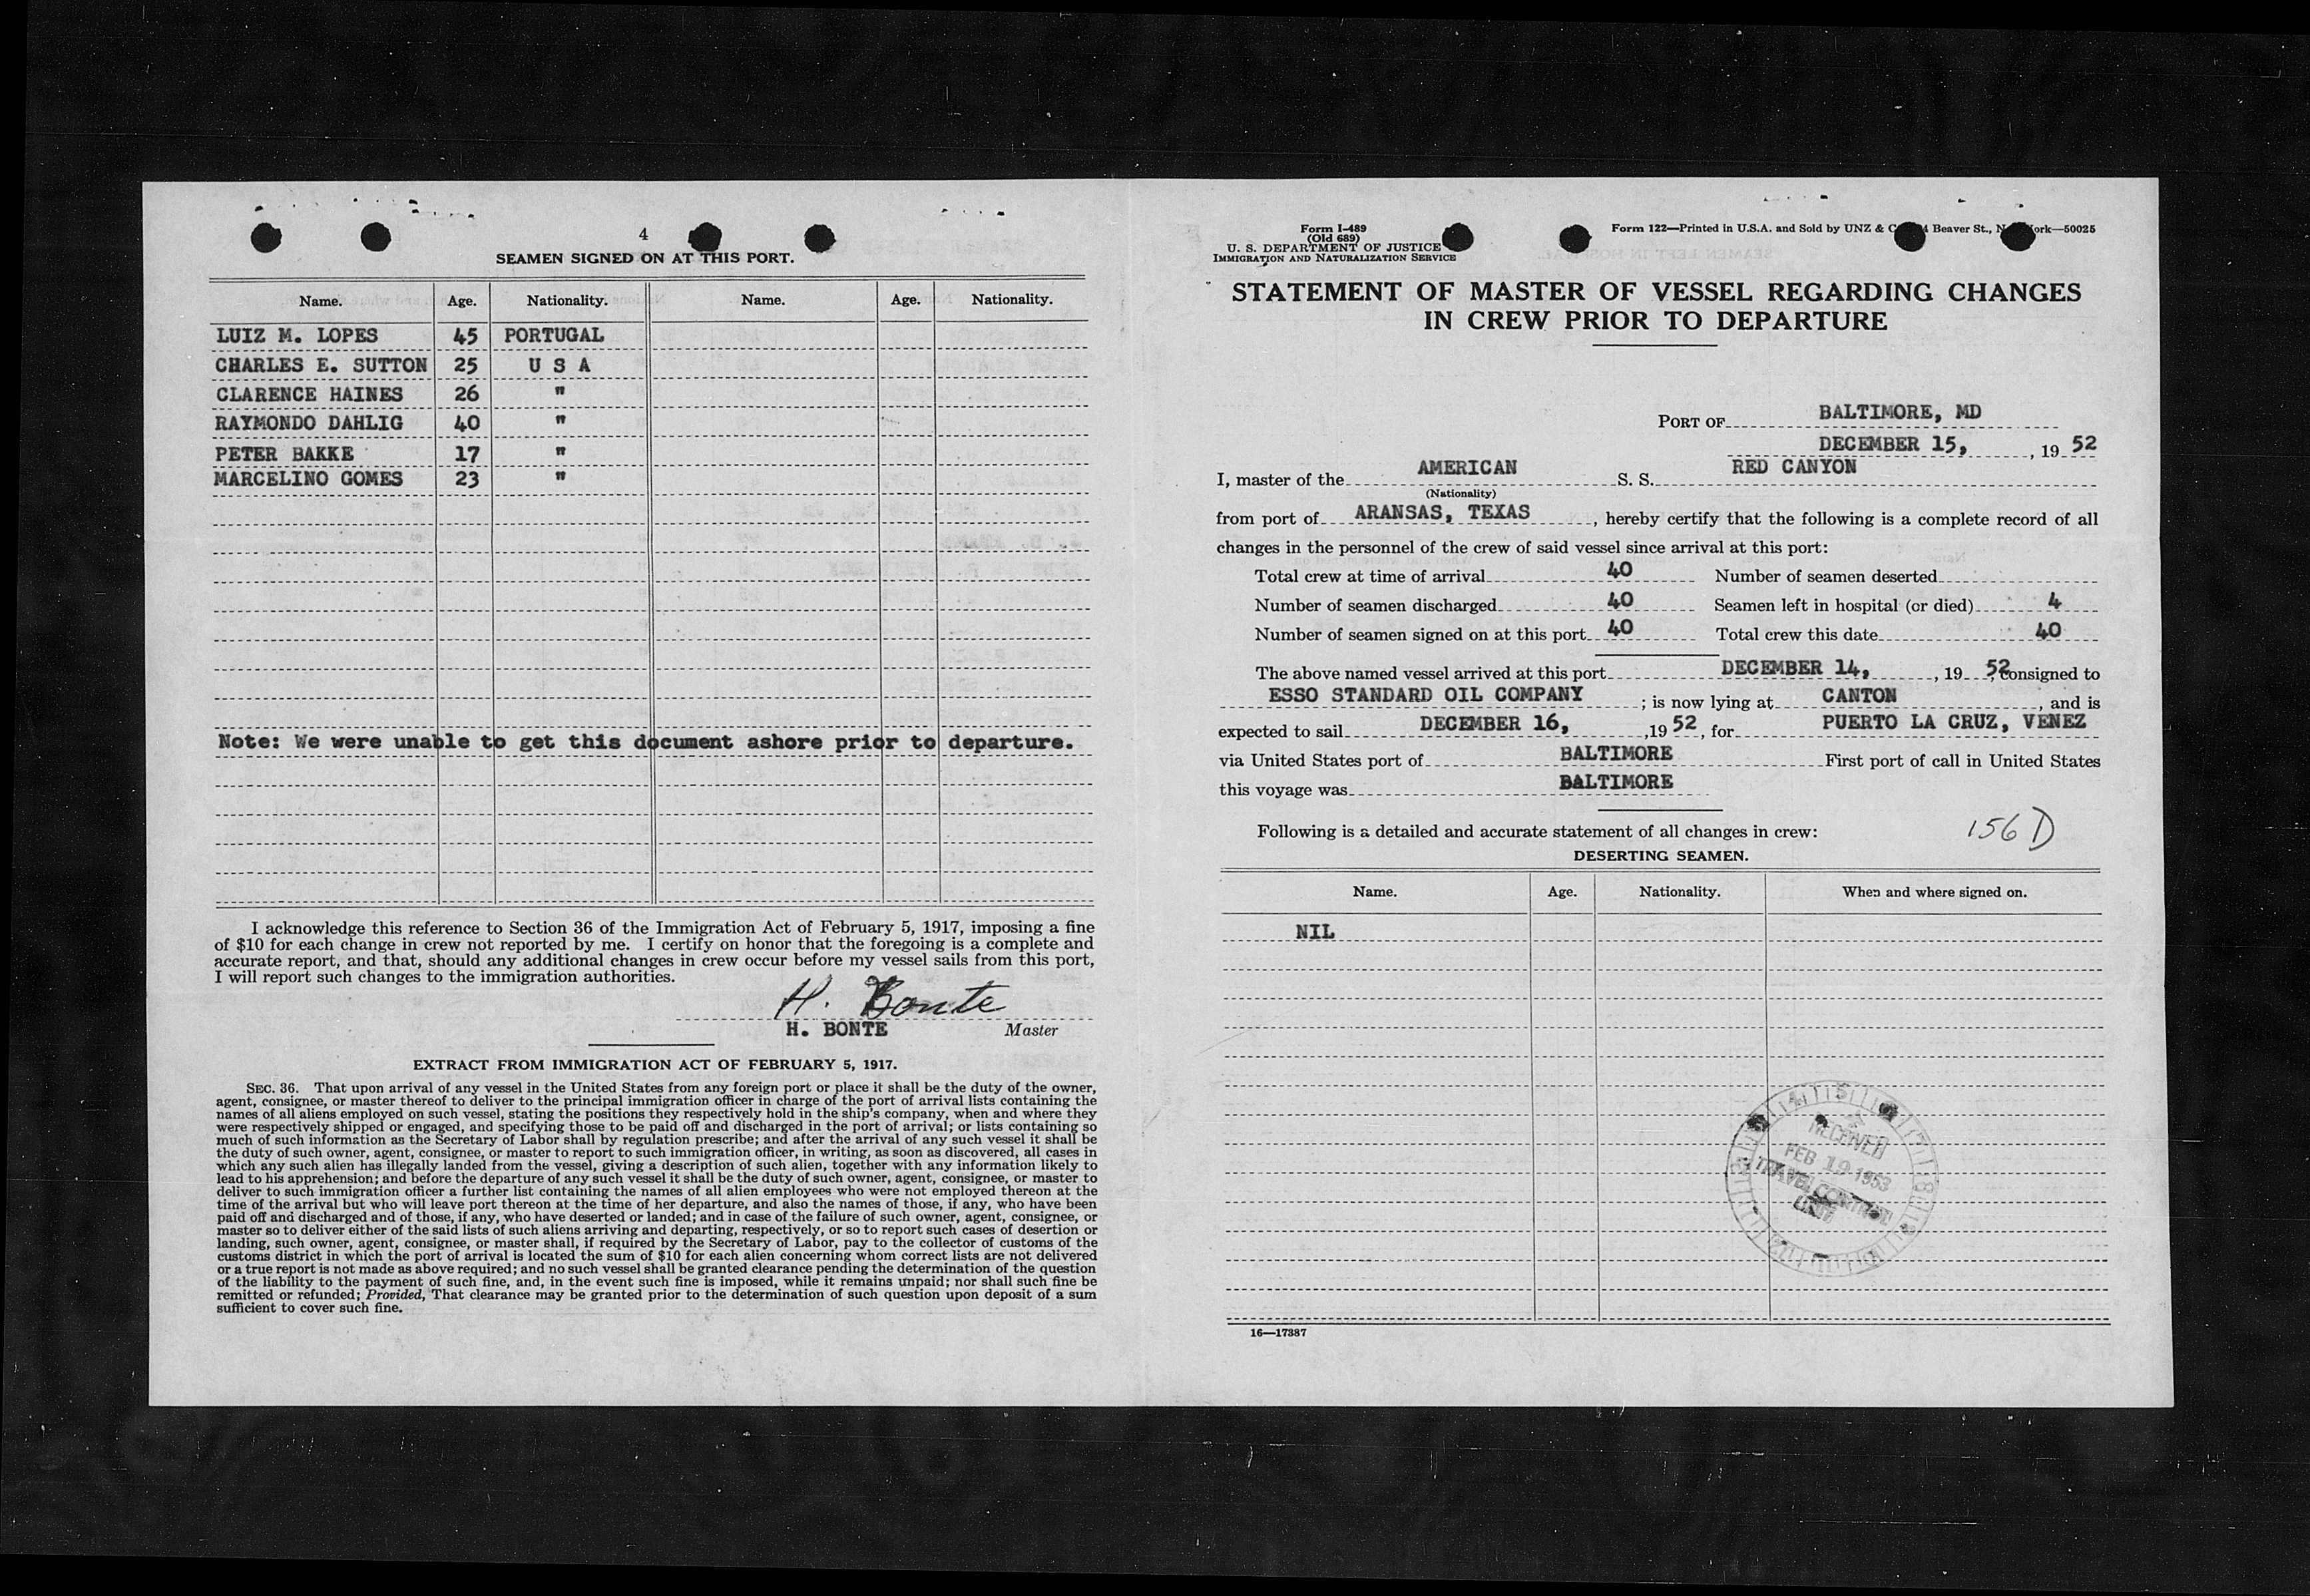 4
SEAMEN SIGNED ON AT THIS PORT.
Name. Age. Nationality. Name. Age. Nationality.
LUIZ M. LOPES 45 PORTUGAL
CHARLES E. SUTTON 25 U S A
CLARENCE HAINES 26 "
RAYMONDO DAHLIG 40 "
PETER BAKKE 17 "
MARCELINO GOMES 23 "
Note: We were unable to get this document ashore prior to departure.
I acknowledge this reference to Section 36 of the Immigration Act of February 5, 1917, imposing a fine
of $10 for each change in crew not reported by me. I certify on honor that the foregoing is a complete and
accurate report, and that, should any additional changes in crew occur before my vessel sails from this port,
I will report such changes to the immigration authorities.
H. Bonte
H. BONTE Master
EXTRACT FROM IMMIGRATION ACT OF FEBRUARY 5, 1917.
SEC. 36. That upon arrival of any vessel in the United States from any foreign port or place it shall be the duty of the owner,
agent, consignee, or master thereof to deliver to the principal immigration officer in charge of the port of arrival lists containing the
names of all aliens employed on such vessel, stating the positions they respectively hold in the ship's company, when and where they
were respectively shipped or engaged, and specifying those to be paid off and discharged in the port of arrival; or lists containing so
much of such information as the Secretary of Labor shall by regulation prescribe; and after the arrival of any such vessel it shall be
the duty of such owner, agent, consignee, or master to report to such immigration officer, in writing, as soon as discovered, all cases in
which any such alien has illegally landed from the vessel, giving a description of such alien, together with any information likely to
lead to his apprehension; and before the departure of any such vessel it shall be the duty of such owner, agent, consignee, or master to
deliver to such immigration officer a further list containing the names of all alien employees who were not employed thereon at the
time of the arrival but who will leave port thereon at the time of her departure, and also the names of those, if any, who have been
paid off and discharged and of those, if any, who have deserted or landed; and in case of the failure of such owner, agent, consignee, or
master so to deliver either of the said lists of such aliens arriving and departing, respectively, or so to report such cases of desertion or
landing, such owner, agent, consignee, or master shall, if required by the Secretary of Labor, pay to the collector of customs of the
customs district in which the port of arrival is located the sum of $10 for each alien concerning whom correct lists are not delivered
or a true report is not made as above required; and no such vessel shall be granted clearance pending the determination of the question
of the liability to the payment of such fine, and, in the event such fine is imposed, while it remains unpaid; nor shall such fine be
remitted or refunded; Provided, That clearance may be granted prior to the determination of such question upon deposit of a sum
sufficient to cover such fine.
Form I-489
(Old 689)
U. S. DEPARTMENT OF JUSTICE
IMMIGRATION AND NATURALIZATION SERVICE
Form 122—Printed in U.S.A. and Sold by UNZ & Beaver St., 50025
STATEMENT OF MASTER OF VESSEL REGARDING CHANGES
IN CREW PRIOR TO DEPARTURE
PORT OF BALTIMORE, MD
DECEMBER 15, , 19 52
I, master of the AMERICAN S. S. RED CANYON
(Nationality)
from port of ARANSAS, TEXAS , hereby certify that the following is a complete record of all
changes in the personnel of the crew of said vessel since arrival at this port:
Total crew at time of arrival 40 Number of seamen deserted
Number of seamen discharged 40 Seamen left in hospital (or died) 4
Number of seamen signed on at this port 40 Total crew this date 40
The above named vessel arrived at this port DECEMBER 14, , 19 52, consigned to
ESSO STANDARD OIL COMPANY ; is now lying at CANTON , and is
expected to sail DECEMBER 16, ,19 52 , for PUERTO LA CRUZ, VENEZ
via United States port of BALTIMORE First port of call in United States
this voyage was BALTIMORE
Following is a detailed and accurate statement of all changes in crew: 156 D
DESERTING SEAMEN.
Name. Age. Nationality. When and where signed on.
NIL
RECEIVED
FEB 19 1953
TRAVEL CONTROL
UNIT
16—17387